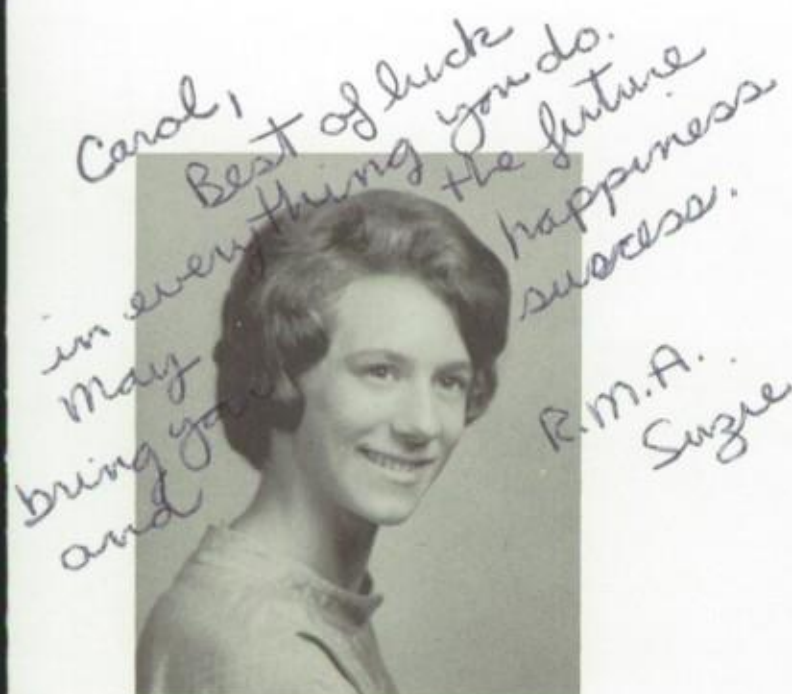 Carol,
Best of luck
in everything you do.
May the future
bring you happiness
and success.
R.M.A.
Suzie